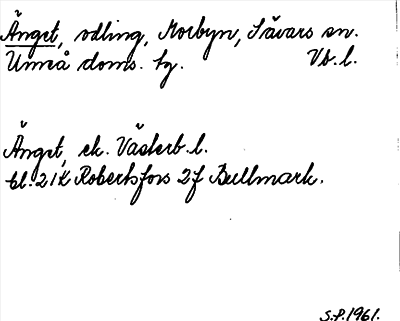 Änget, odling, Morbyn, Sävars sn.
Umeå doms. hg. Vb.l.
Änget, ek. Västerb.l.
bl. 21K Robertsfors 2f Bullmark.
S.P.1961.